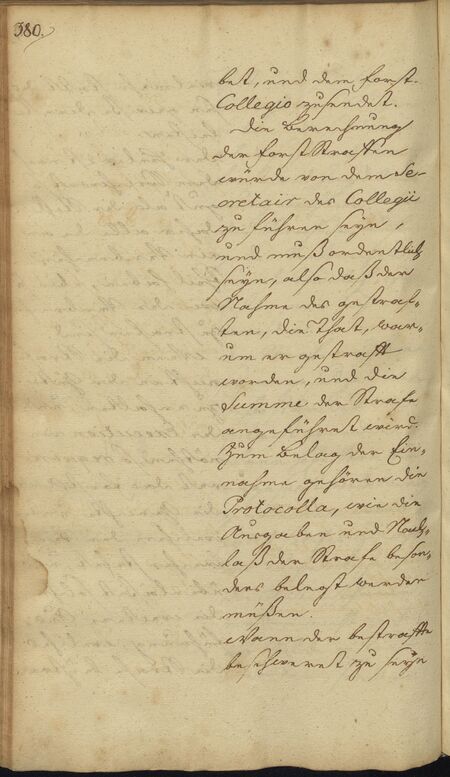 380.
bet, und dem Forst-
Collegio zusendet.
Die Berechnung
der Forst Straffen
würde von dem Se-
cretair des Collegii
zu führen seyn,
und muß ordentlich
seyn, also daß der
Nahme des gestraf-
ten, die That, war-
um er gestrafft
worden, und die
Summe der Strafe
angeführet wird.
Zum Belag der Ein-
nahme gehören die
Protocolla, wie die
Ausgaben und Nach-
laß der Strafe beson-
ders belegt werden
müßen.
Wann der bestraffte
beschweret zu seyn